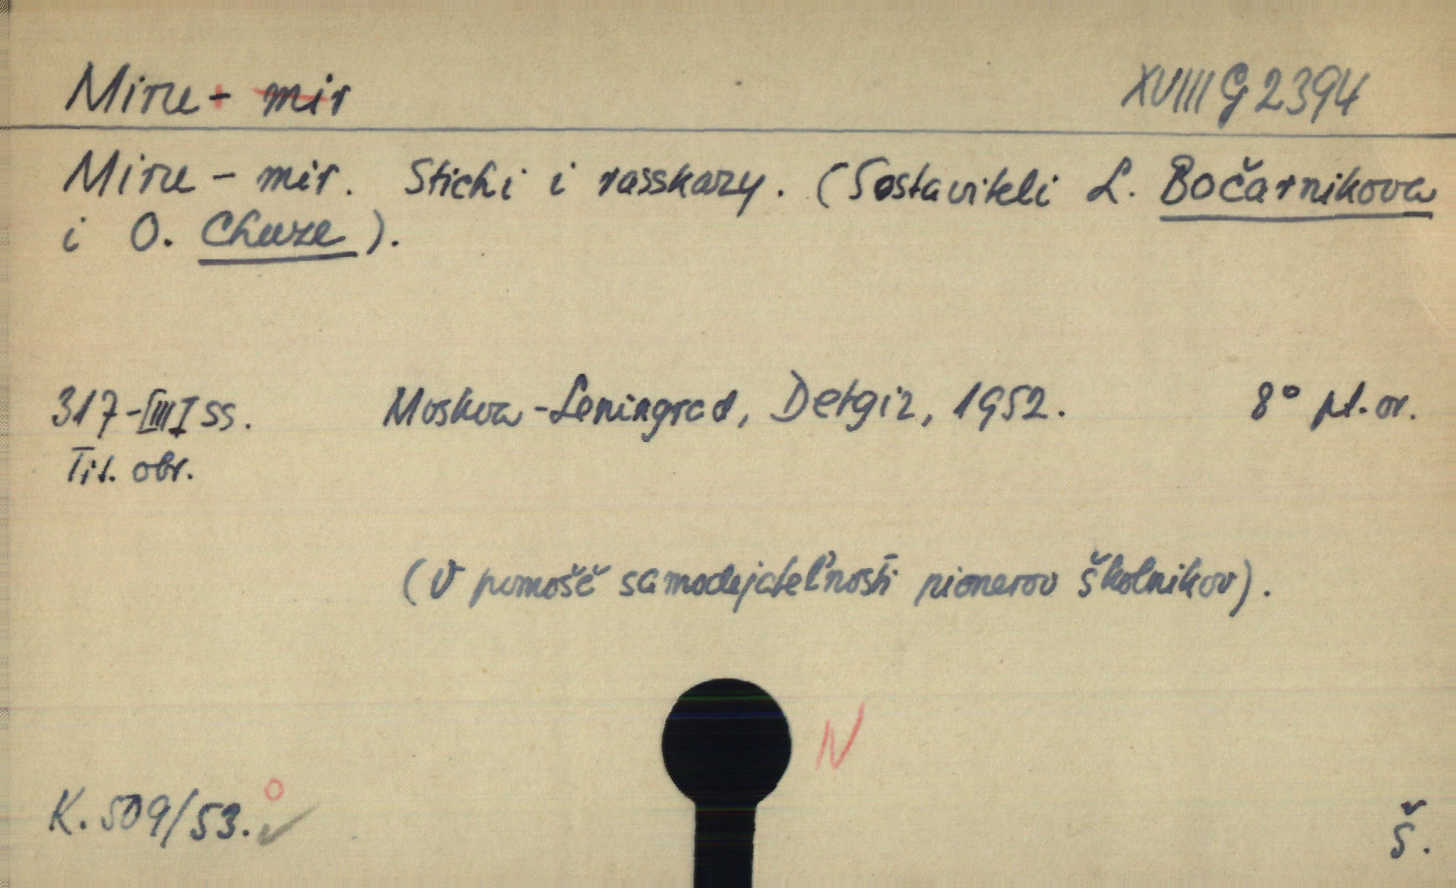 Miru - mir XVIII G 2394
Miru - mir. Stichi i rasskazy. (Sostaviteli L. Bočarnikova
i O. Chuze).
317-[III] ss. Moskva - Leningrad, Detgiz, 1952. 8° pl. or.
Tit. obr.
(V pomošč samodejateľnosti pionerov školnikov).
N
K. 509/53.
Š.